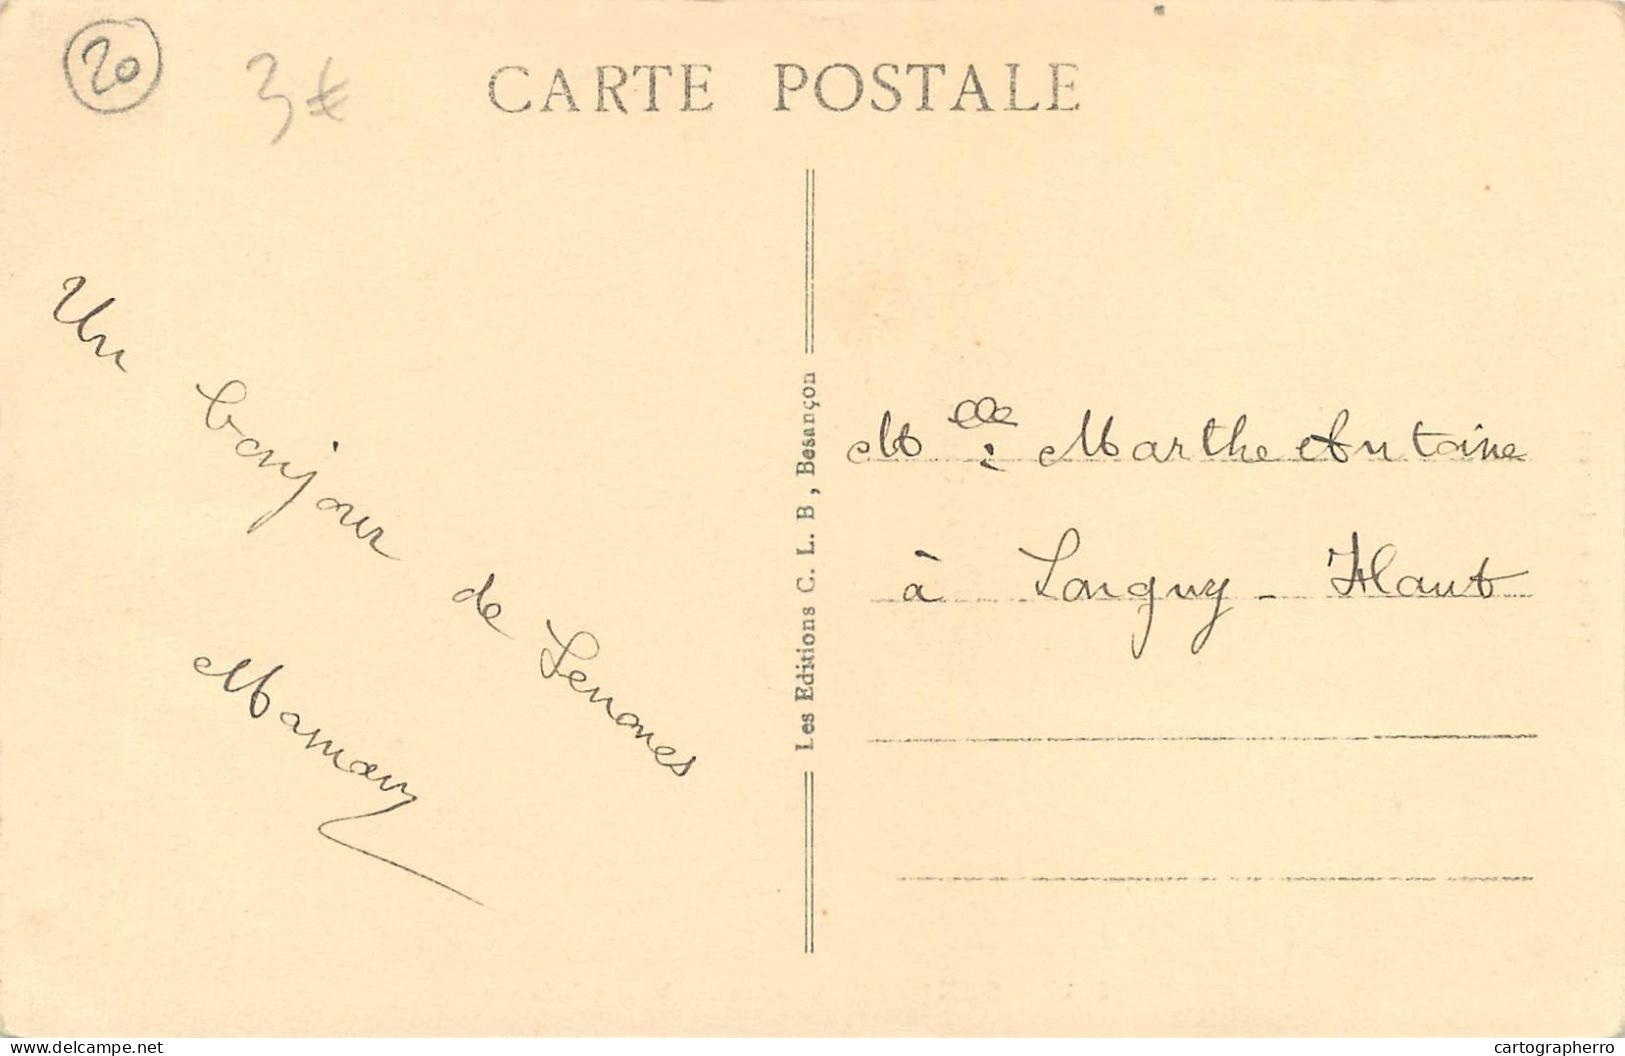 20
3€
CARTE POSTALE
Un bonjour de Senones
Maman
Les Editions C. L. B, Besançon
Melle : Marthe Antoine
à Longwy - Haut
delcampe.net
cartographerro